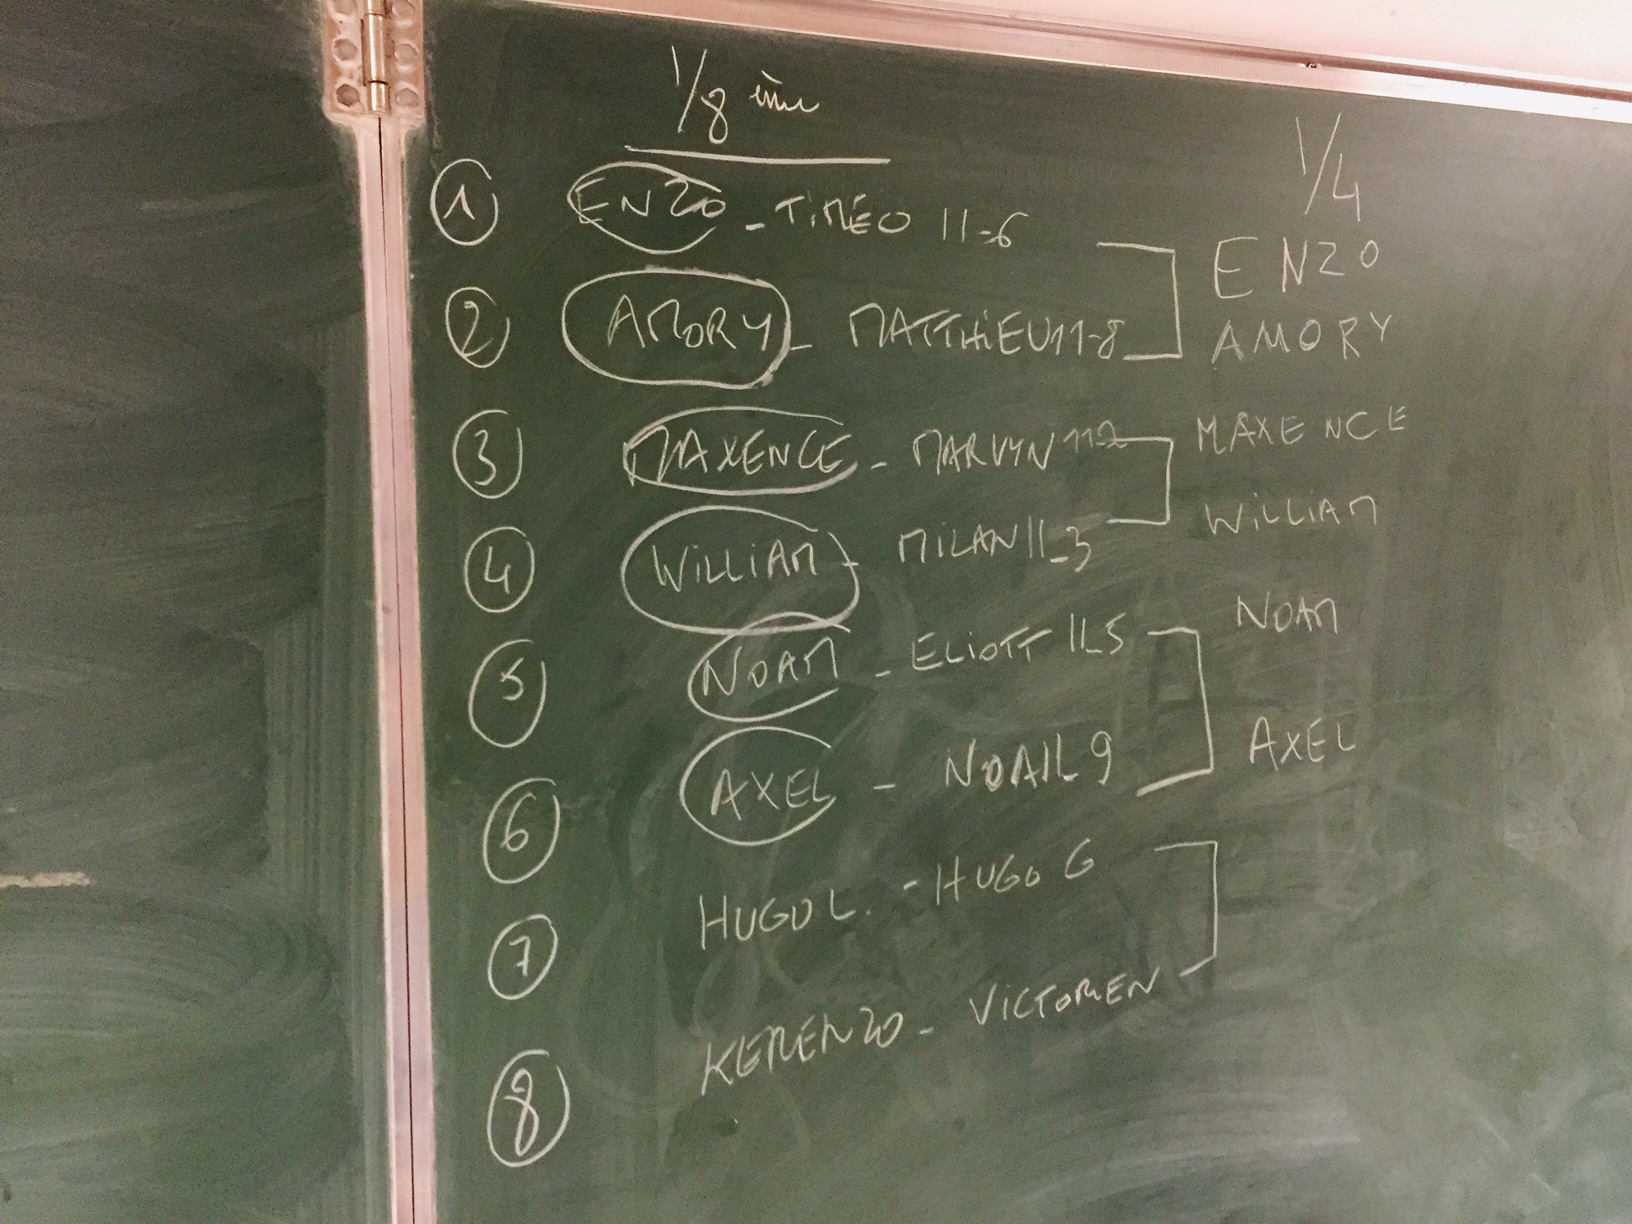 1/8 ème
1/4
① ENZO - TIMÉO 11-6
ENZO
② AMORY - MATTHIEU 11-8
AMORY
③ MAXENCE - MARVYN 11-2
MAXENCE
④ WILLIAM - MILAN 11-3
WILLIAM
⑤ NOAM - ELIOTT 11-5
NOAM
⑥ AXEL - 9
AXEL
⑦ HUGO L. - HUGO G
⑧ KERENZO - VICTORIEN